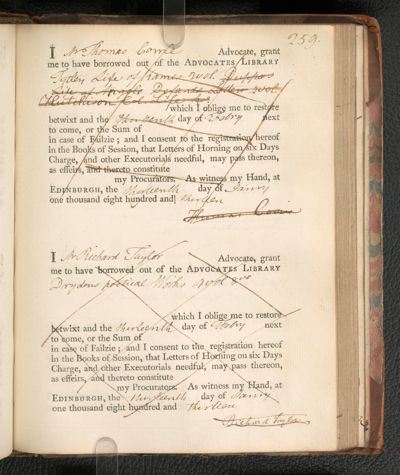 259.
I Mr Thomas Advocate, grant
me to have borrowed out of the ADVOCATES LIBRARY
Tytler Life of Kames 2 vol
which I oblige me to restore
betwixt and the thirteenth day of next
to come, or the Sum of
in case of Failzie; and I consent to the registration hereof
in the Books of Session, that Letters of Horning on six Days
Charge, and other Executorials needful, may pass thereon,
as effeirs, and thereto constitute
my Procurators. As witness my Hand, at
EDINBURGH, the thirteenth day of Janry
one thousand eight hundred and thirteen
Thomas
I Mr Richard Taylor Advocate, grant
me to have borrowed out of the ADVOCATES LIBRARY
Drydens poetical Works 8vo
which I oblige me to restore
betwixt and the thirteenth day of next
to come, or the Sum of
in case of Failzie; and I consent to the registration hereof
in the Books of Session, that Letters of Horning on six Days
Charge, and other Executorials needful, may pass thereon,
as effeirs, and thereto constitute
my Procurators. As witness my Hand, at
EDINBURGH, the thirteenth day of Janry
one thousand eight hundred and thirteen
Richard Taylor